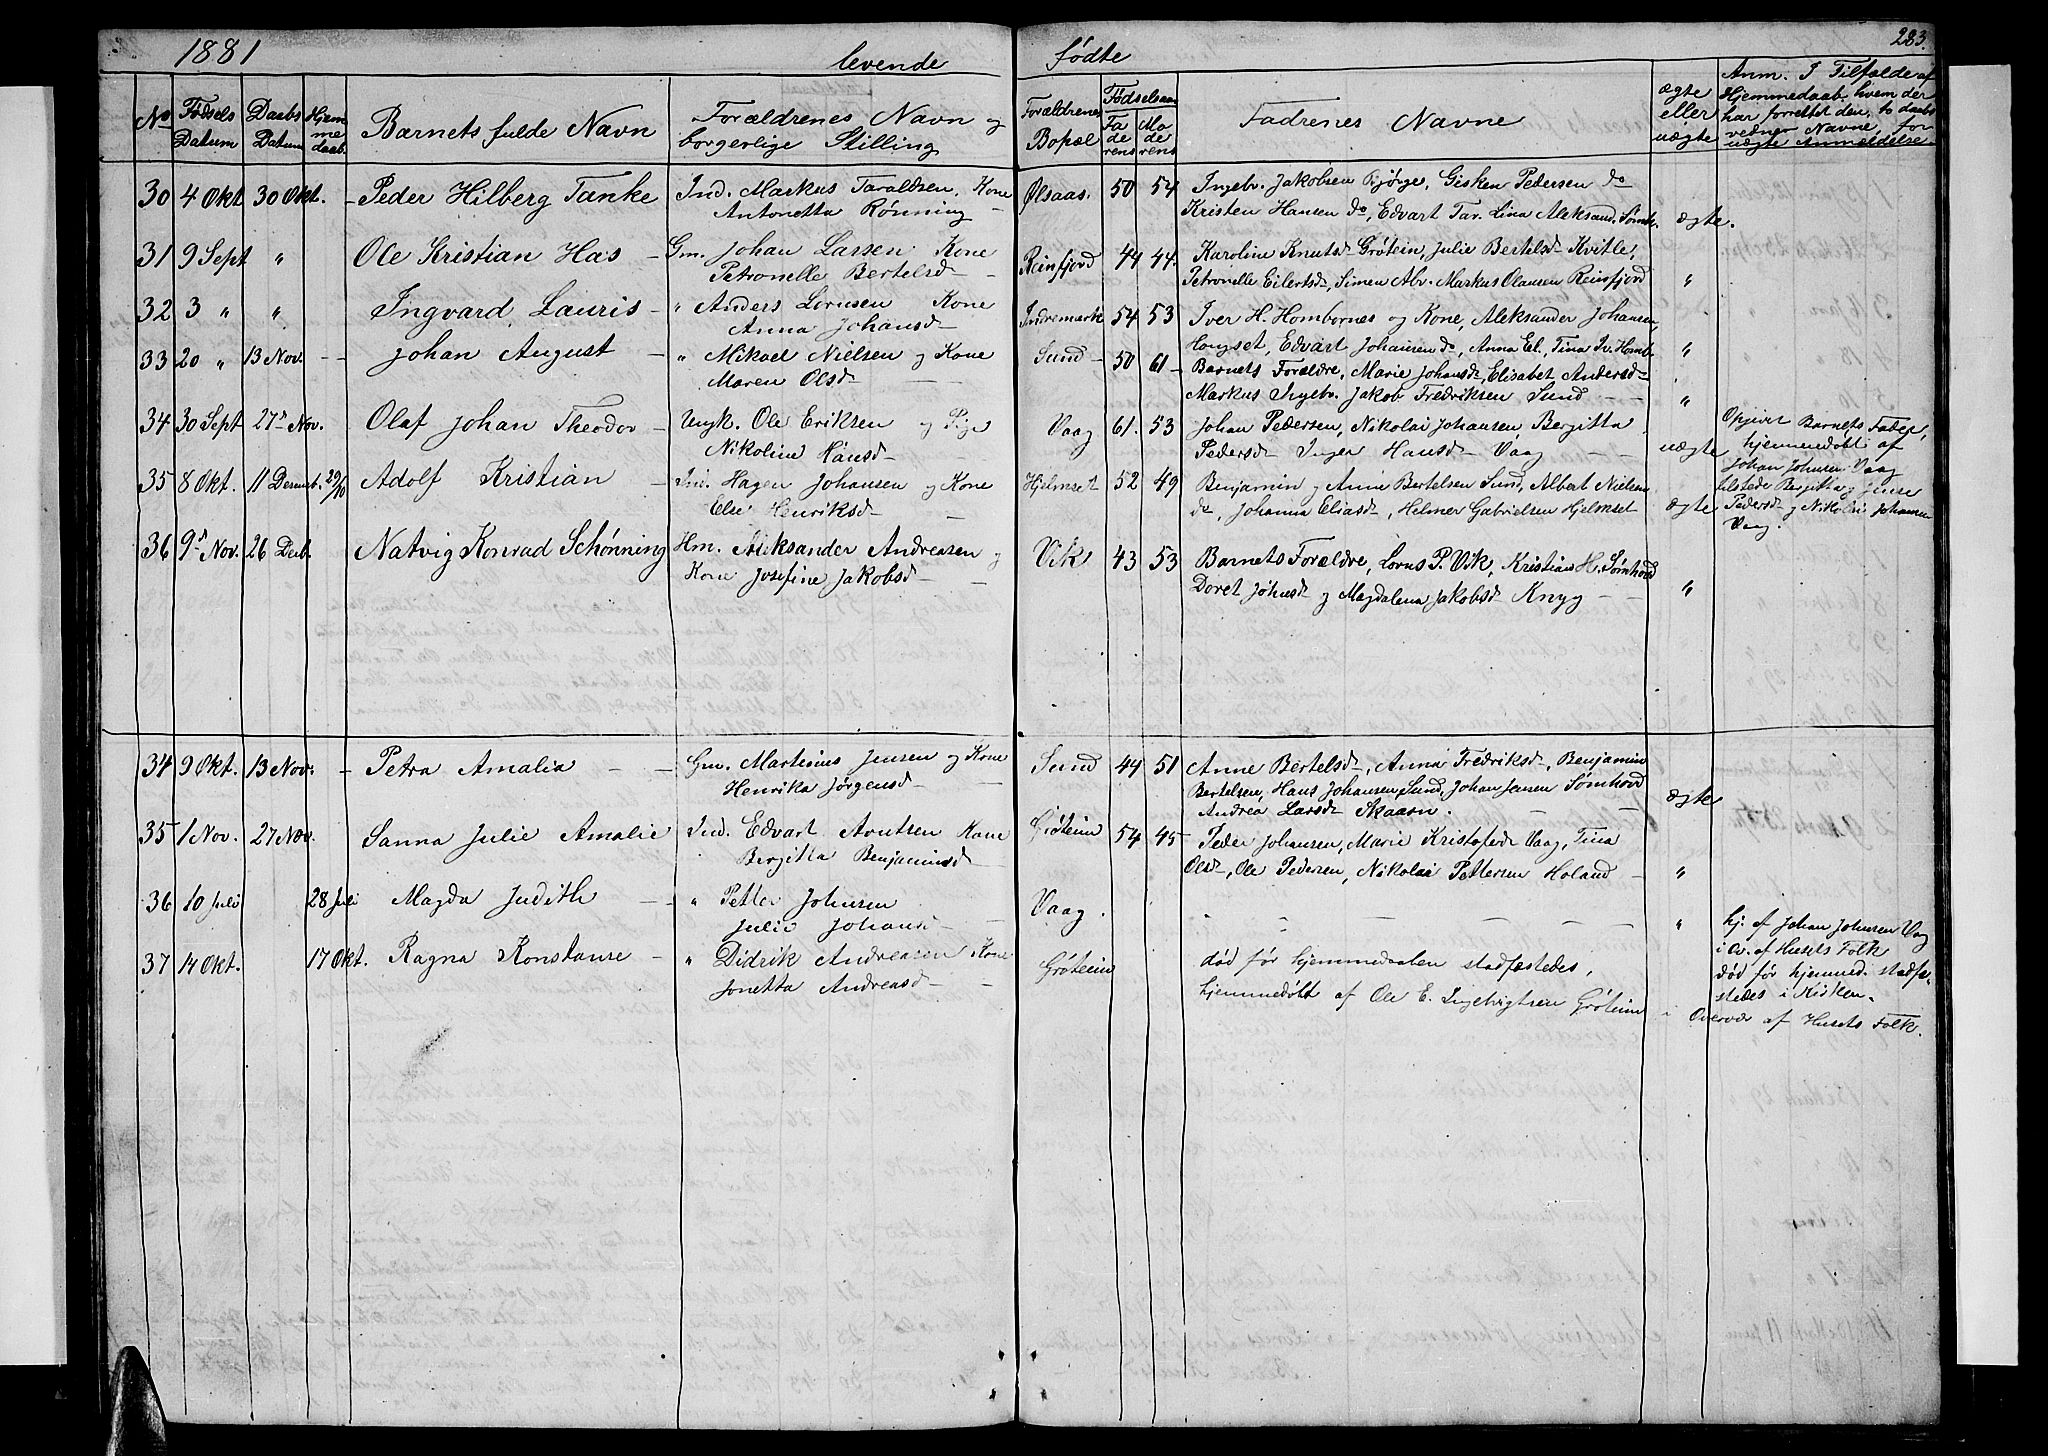 1881 levende fødte 283.
No Fødsels Datum Daabs Datum Hjemmedaab. Barnets fulde Navn Forældrenes Navn og borgerlige Stilling Forældrenes Bopæl Fødselsaar Faderens Moderens Fadrenes Navne ægte eller uægte Anm. I Tilfælde af Hjemmedaab. hvem der har forrettet den, to daabsvedner Navne, for uægte Anmeldelse
30 4 Okt 30 Okt. - Peder Hilberg Tanke Ind. Markus Taraldsen, Kone Ølsaas. 50 54 Ingebr. Jakobsen Bjørge, Gisken Pedersen do
Antonetta Rønning - Kristen Hansen do, Edvart Tar. Lina Aleksand. Sømh. ægte.
31 9 Sept " Ole Kristian Has - Gm. Johan Larsen Kone Reinfjord 44 44. Karoline Knutsd Grøtein, Julie Bertelsd Kvitle,
Petronelle Bertelsd - Petronelle Eilertsd, Simen Abr. Markus Olausen Reinfjord "
32 3 " " Ingvard Lauris - " Anders Lornsen Kone Indremark 54 53 Iver H. Hombornes og Kone, Aleksander Johansen,
Anna Johansd - Hongset, Edvart Johansen do, Anna El., Tina Iv. Homb. "
33 20 " 13 Nov. - Johan August - " Mikael Nielsen og Kone Sund - 50 61 - Barnets Forældre, Marie Johansd, Elisabet Andersd
Maren Olsd - Markus Ingebr. Jakob Fredriksen Sund - - "
34 30 Sept 27 Nov. Olaf Johan Theodor - Ungk. Ole Eriksen og Pige Vaag 61. 53 Johan Pedersen, Nikolai Johansen, Bergitta Opgivet Barnets Fader,
Nikoline Hansd - Pedersd Inger Hansd Vaag - uægte hjemmedøbt af
Johan Johnsen Vaag
35 8 Okt. 11 Decemb. 29/10 Adolf Kristian - Ind. Hagen Johansen og Kone Hjelmset 52 49 Benjamin og Anne Bertelsen Sund, Albert Nielsen tilstede Bergitta og Jense
Else Henriksd - do, Johanna Eliasd, Helmer Gabrielsen Hjelmset ægte Pedersd og Nikolai Johansen
Vaag.
36 9 Nov. 26 Decb. Natvig Konrad Schønning Hm. Aleksander Andreasen og Vik 43 53 Barnets Forældre, Lorns P. Vik, Kristian H. Sømhovd
Kone Josefine Jakobsd - Doret Johnsd og Magdalena Jakobsd Knyg - - "
34 9 Okt. 13 Nov. - Petra Amalia - - Gm. Martinius Jensen og Kone Sund 44 51 Anne Bertelsd, Anna Fredriksd, Benjamin
Henrika Jørgensd - Bertelsen, Hans Johansen Sund, Johan Jensen Sømhovd
Andrea Larsd Skaasn. - - ægte
35 1 Nov. 27 Nov. Sanna Julie Amalie Ind. Edvart Arntsen Kone Grøteim 54 45 - Peder Johansen, Marie Kristofersd Vaag, Tina
Bergitta Benjaminsd - Olsd, Ole Pedersen, Nikolai Pettersen Holand - "
36 10 Juli 28 Juli Magda Judith - - " Petter Johnsen Vaag. - - - - - " hj. af Johan Johnsen Vaag
Julie Johansd - i Ov. af Husets Folk
37 14 Okt. 17 Okt. Ragna Konstanse - " Didrik Andreasen Kone Grøteim død før hjemmedaaben stadfæstedes, død før hjemmed. stadfæ-
Jonetta Andreasd - - stedes i Kirken.
hjemmedøbt af Ole E. Ingebrigtsen Grøteim i Overvær af Husets Folk.